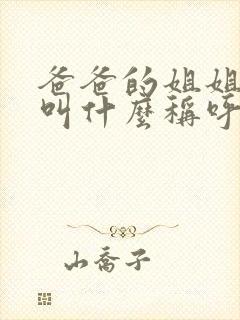 爸爸的姐姐
叫什麼稱呼
山喬子